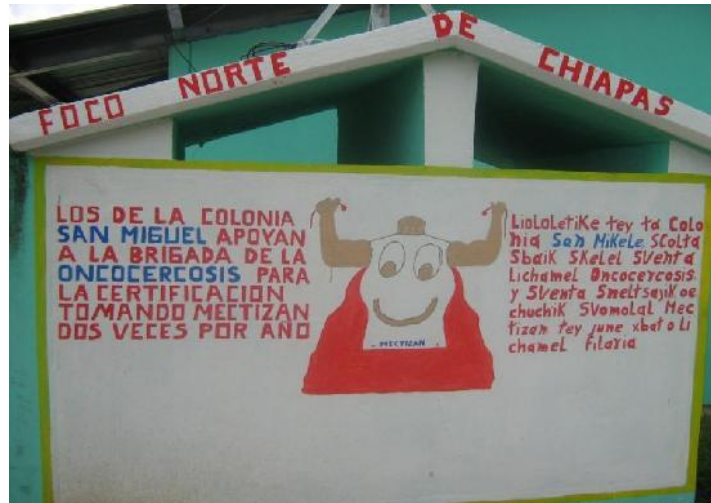 FOCO NORTE DE CHIAPAS
LOS DE LA COLONIA
SAN MIGUEL APOYAN
A LA BRIGADA DE LA
ONCOCERCOSIS PARA
LA CERTIFICACION
TOMANDO MECTIZAN
DOS VECES POR AÑO
MECTIZAN
LioloLetiKe tey ta Colo
nia San MiKele SColta
SbaiK SKelel SVenta
Lichamel Oncocercosis
y SVenta SmeltsayiK oe
chuchiK SVomolal Mec
tizan tey june xbat o Li
chamel Filaria